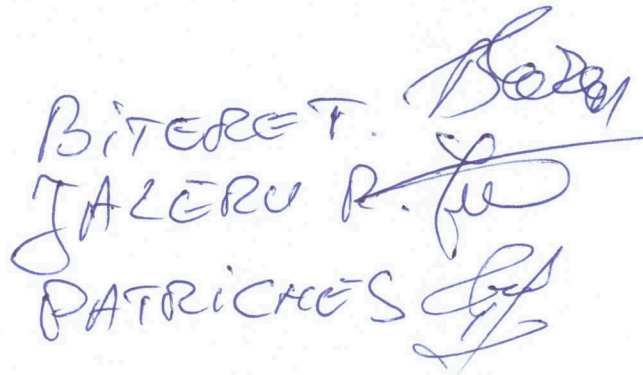 BITERE T.
JALERU R.
PATRICHE S